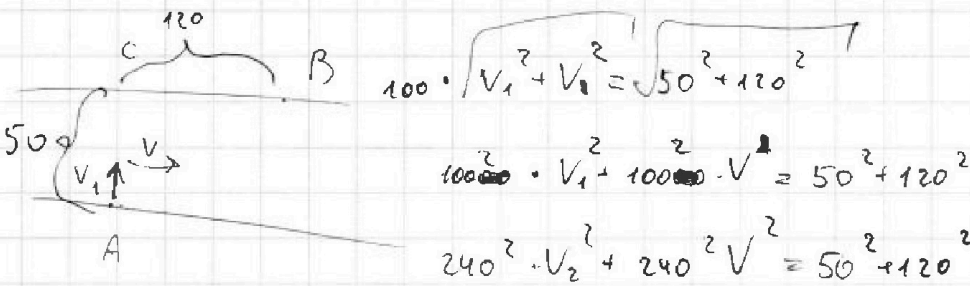 120
C B
50
V₁ V
A
100 · √(V₁² + V²) = √(50² + 120²)
100² · V₁² + 100² · V² = 50² + 120²
240² · V₂² + 240² V² = 50² + 120²